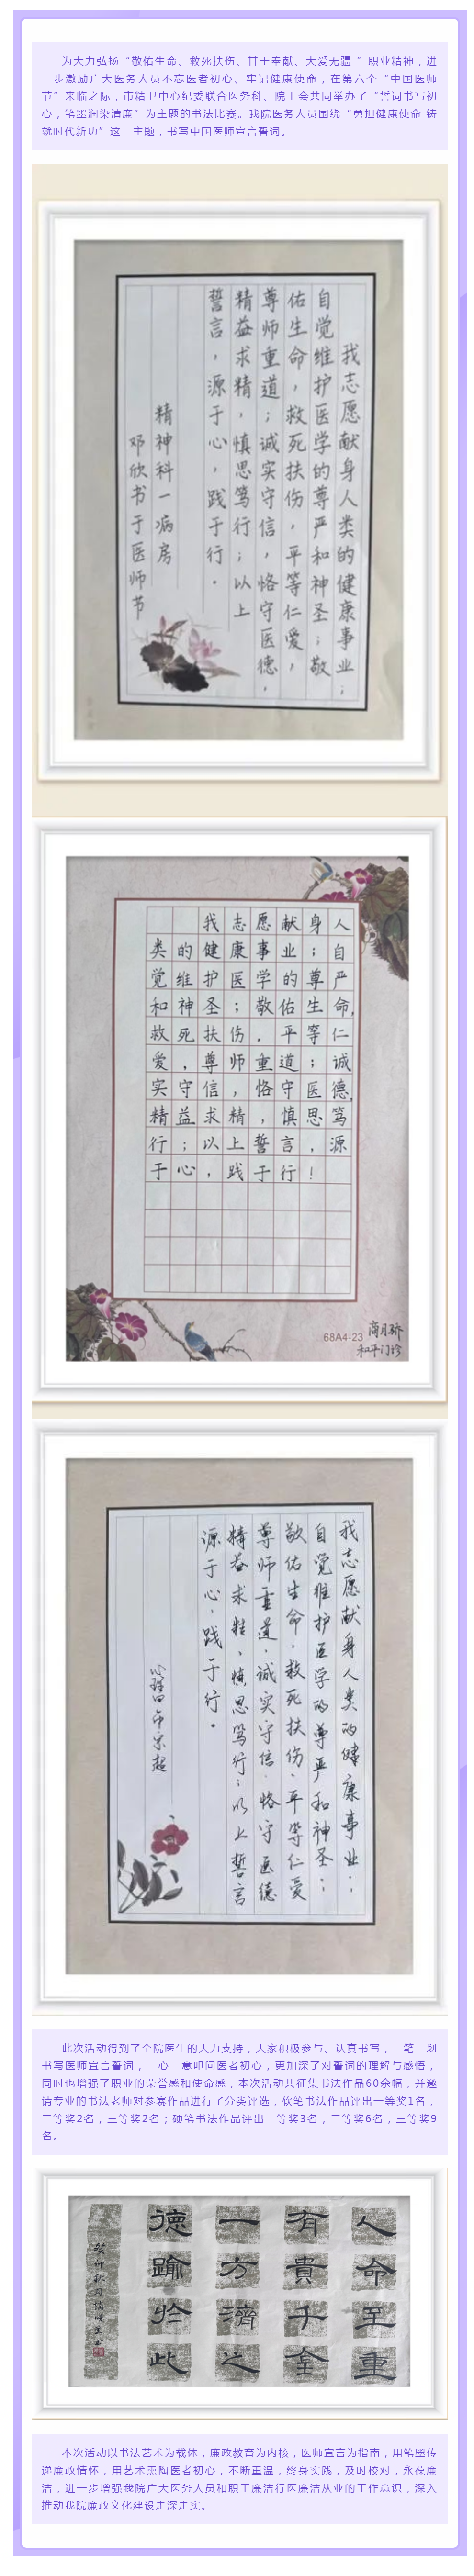 为大力弘扬“敬佑生命、救死扶伤、甘于奉献、大爱无疆 ”职业精神，进
一步激励广大医务人员不忘医者初心、牢记健康使命，在第六个“中国医师
节”来临之际，市精卫中心纪委联合医务科、院工会共同举办了“誓词书写初
心，笔墨润染清廉”为主题的书法比赛。我院医务人员围绕“勇担健康使命 铸
就时代新功”这一主题，书写中国医师宣言誓词。
我志愿献身人类的健康事业；
自觉维护医学的尊严和神圣；敬
佑生命，救死扶伤，平等仁爱，
尊师重道；诚实守信，恪守医德，
精益求精，慎思笃行；以上
誓言，源于心，践于行。
精神科一病房
邓欣书于医师节
我志愿献身人
类的健康事业；自
觉维护医学的尊严
和神圣；敬佑生命，
救死扶伤，平等仁
爱，尊师重道；诚
实守信，恪守医德，
精益求精，慎思笃
行；以上誓言，源
于心，践于行！
68A4-23
和平门诊
我志愿献身人类的健康事业；
自觉维护医学的尊严和神圣；
敬佑生命，救死扶伤，平等仁爱
尊师重道，诚实守信，恪守医德
精益求精，慎思笃行；以上誓言
源于心，践于行。
此次活动得到了全院医生的大力支持，大家积极参与、认真书写，一笔一划
书写医师宣言誓词，一心一意叩问医者初心，更加深了对誓词的理解与感悟，
同时也增强了职业的荣誉感和使命感，本次活动共征集书法作品60余幅，并邀
请专业的书法老师对参赛作品进行了分类评选，软笔书法作品评出一等奖1名，
二等奖2名，三等奖2名；硬笔书法作品评出一等奖3名，二等奖6名，三等奖9
名。
人命至重
有貴千金
一方濟之
德踰於此
本次活动以书法艺术为载体，廉政教育为内核，医师宣言为指南，用笔墨传
递廉政情怀，用艺术熏陶医者初心，不断重温，终身实践，及时校对，永葆廉
洁，进一步增强我院广大医务人员和职工廉洁行医廉洁从业的工作意识，深入
推动我院廉政文化建设走深走实。